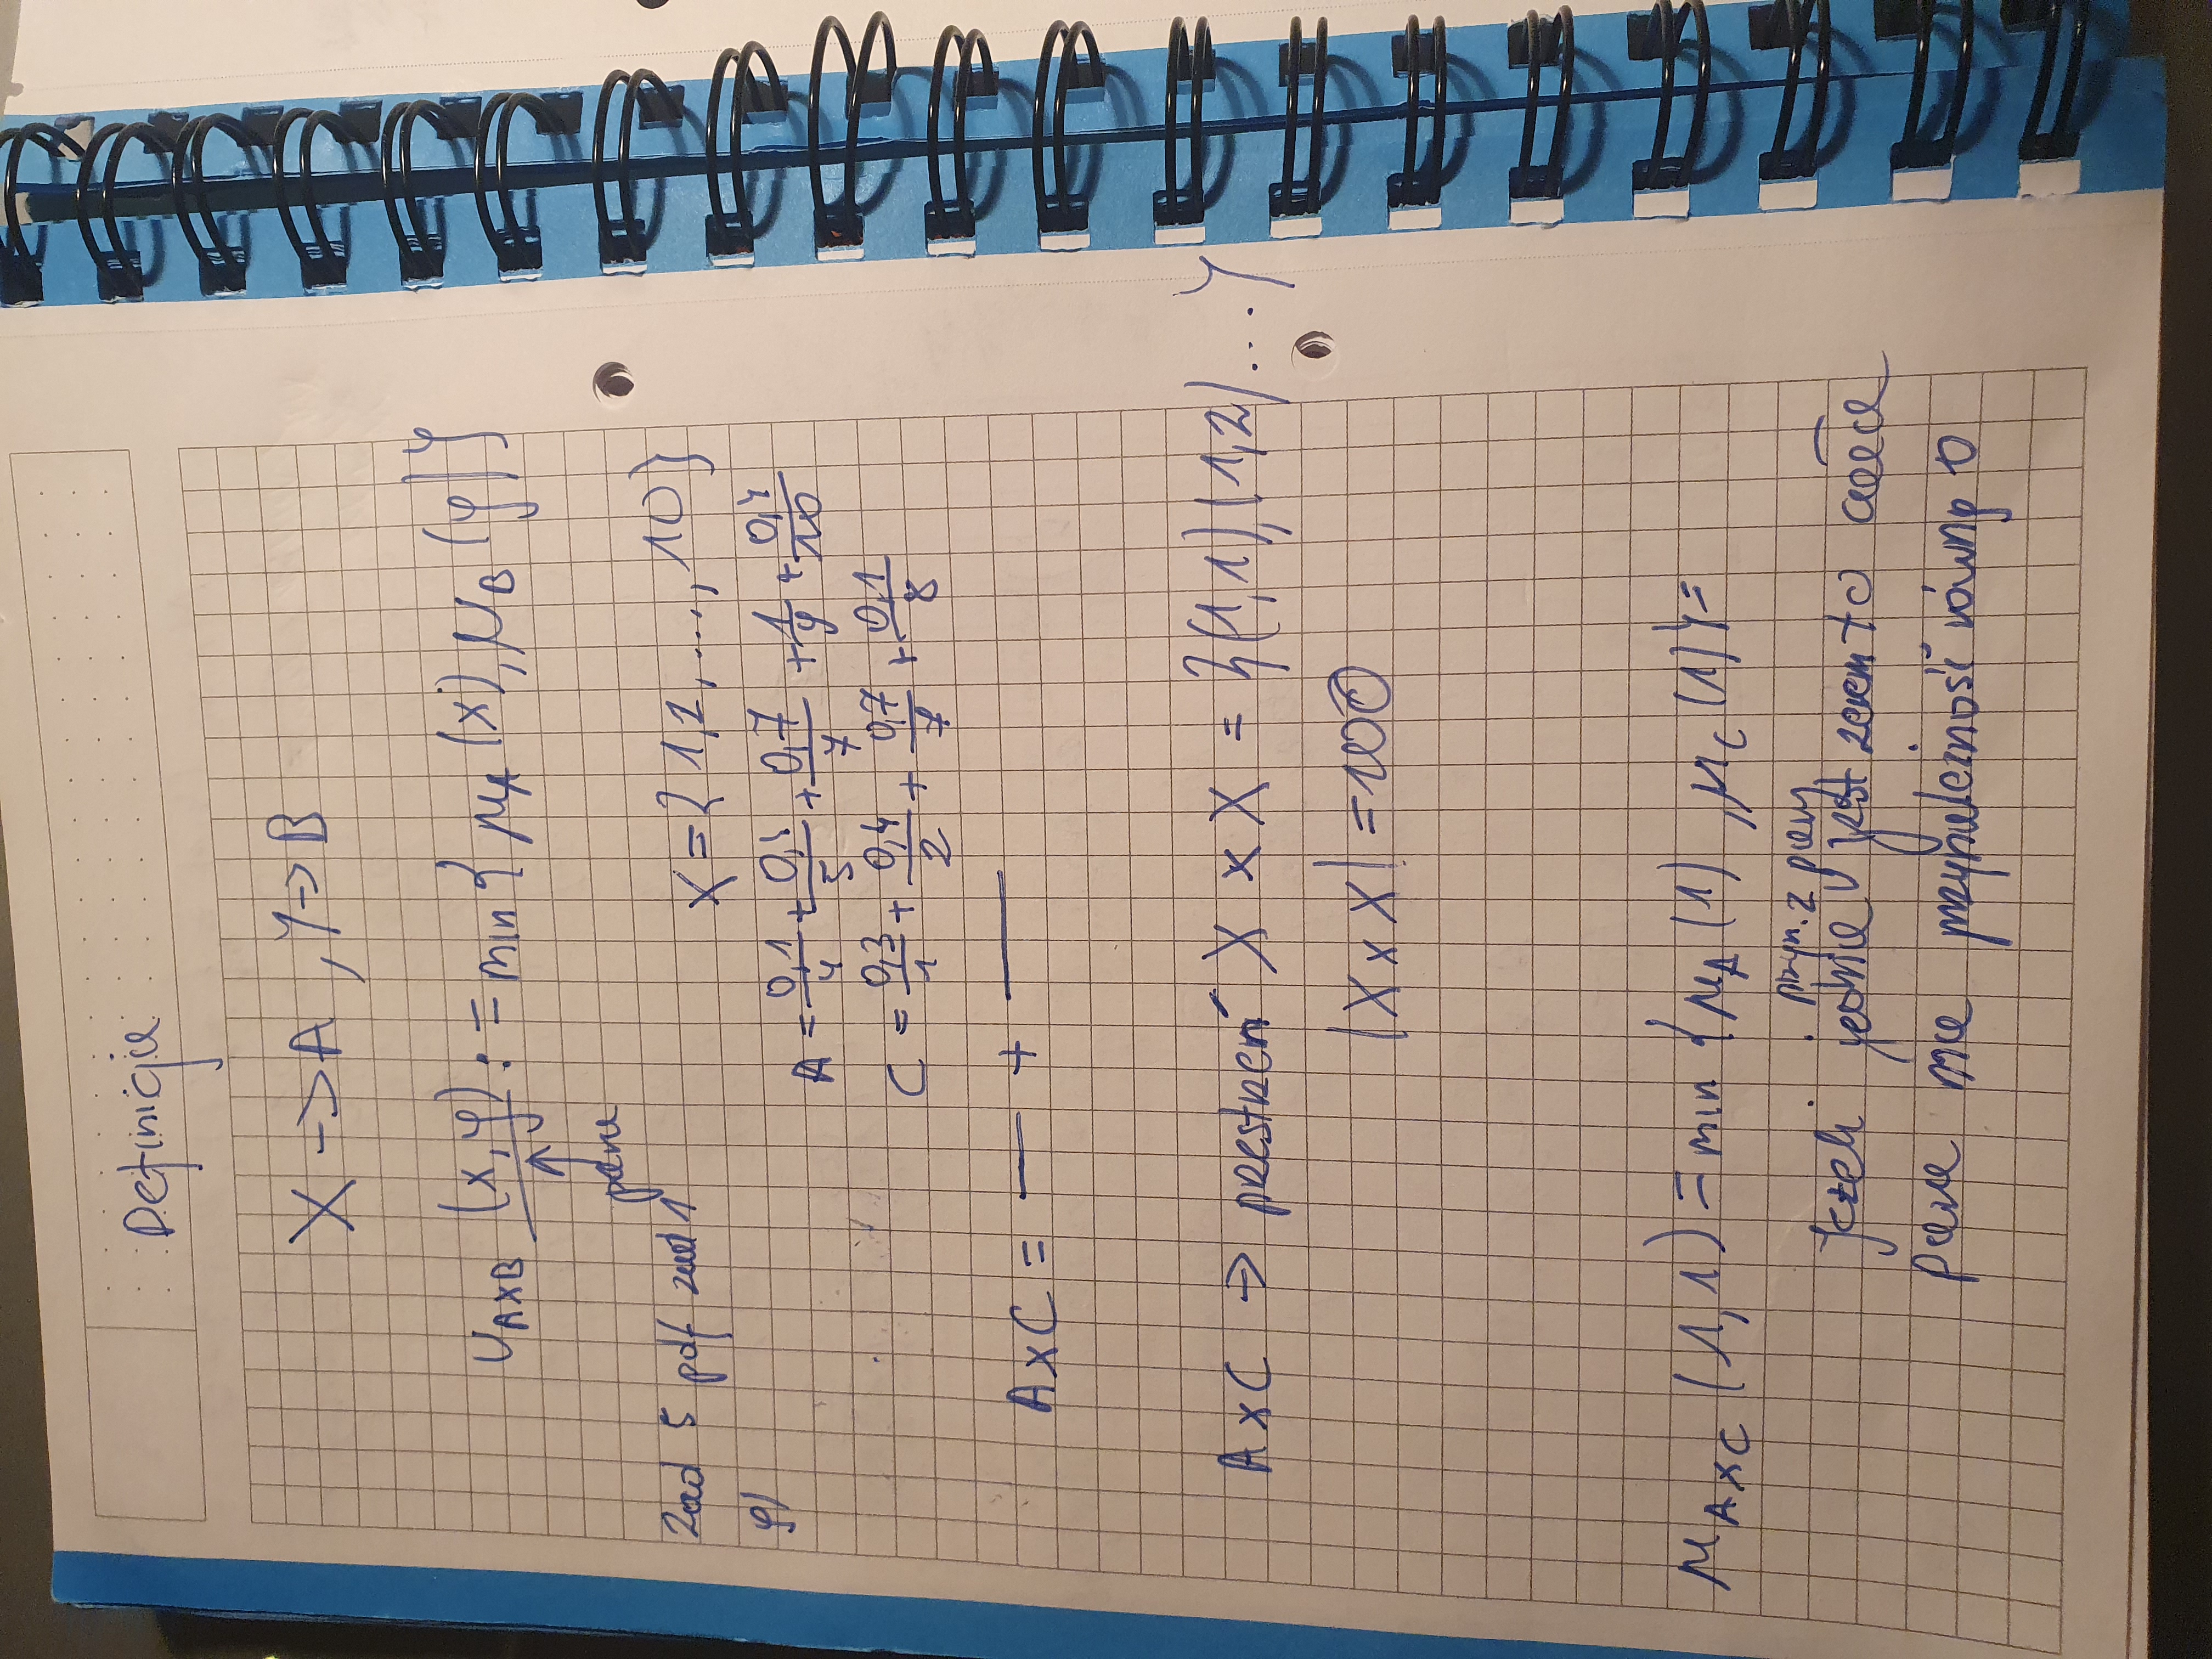 Definicje
X -> A , Y -> B
μ_{A×B} (x,y) := min { μ_A (x), μ_B (y) }
↑
para
Zad 5 pdf zad 1
X = { 1,2, ..., 10 }
g)
A = 0,1/4 + 0,4/5 + 0,7/7 + 1/9 + 0,4/10
C = 0,3/1 + 0,4/2 + 0,7/7 + 0,1/8
A×C = — + —
A×C -> przestrzeń X × X = {(1,1),(1,2)...}
|X×X| = 100
μ_{A×C} (1,1) = min { μ_A (1) , μ_C (1) } =
przyn. z pary
Jeżeli jedna jest zerem to cała
para ma przynależność równą 0